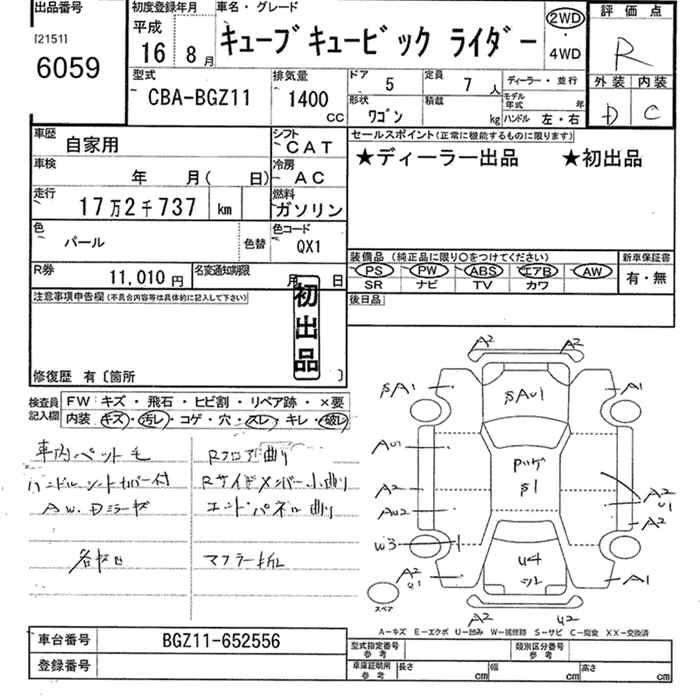 出品番号
[2151]
6059
初度登録年月
平成 16年 8月
車名・グレード
キューブキュービック ライダー
2WD
・
4WD
評価点
R
外装 内装
D C
型式
CBA-BGZ11
排気量
1400 CC
ドア 5
定員 7人
形状 ワゴン
積載 kg
ディーラー・並行
モデル年式 年
ハンドル 左・右
車歴 自家用
シフト CAT
車検 年 月( 日)
冷房 AC
走行 17万2千737 km
燃料 ガソリン
色 パール 色替
色コード QX1
R券 11,010円
名変通知期限 月 日
セールスポイント(正常に機能するものに限ります)
★ディーラー出品 ★初出品
装備品(純正品に限り○をつけてください)
新車保証書
PS PW ABS エアB AW
SR ナビ TV カワ
有・無
後日品
注意事項申告欄(不具合内容等は具体的に記入して下さい)
初出品
修復歴 有〔箇所 〕
検査員記入欄
FW キズ・飛石・ヒビ割・リペア跡・×要
内装 キズ・汚レ・コゲ・穴・スレ・キレ・破レ
車内ペット毛
ハンドルシートカバー付
AW. Dミラーキズ
Rフロア曲り
Rサイドメンバー小曲り
エンドパネル曲り
マフラー折レ
A2 A2
SA1 SAU1 A1
AU1
S1
A2 A2
U1
AW2 A2
W3 U4
A2
U1 A1
スペア
A2 U2
A-キズ E-エクボ U-凹み W-補修跡 S-サビ C-腐食 XX-交換済
車台番号 BGZ11-652556
登録番号
型式指定番号 参考
類別区分番号 参考
車庫証明用 参考
長さ cm 幅 cm 高さ cm